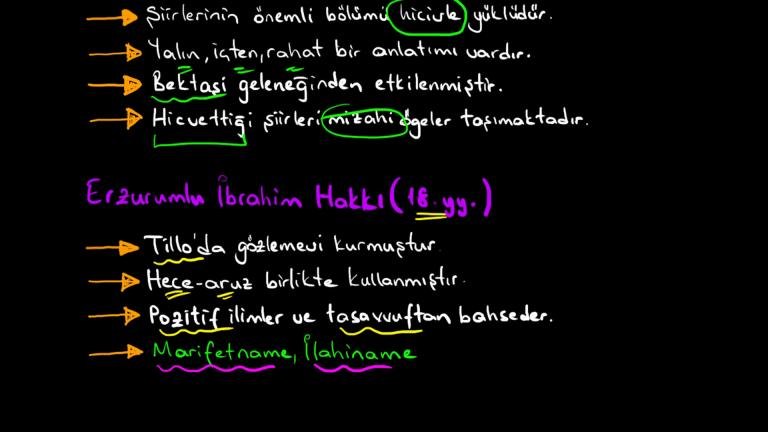 Şiirlerinin önemli bölümü hicivle yüklüdür.
Yalın, içten, rahat bir anlatımı vardır.
Bektaşi geleneğinden etkilenmiştir.
Hicvettiği şiirleri mizahi ögeler taşımaktadır.
Erzurumlu İbrahim Hakkı (18. yy.)
Tillo'da gözlemevi kurmuştur.
Hece-aruz birlikte kullanmıştır.
Pozitif ilimler ve tasavvuftan bahseder.
Marifetname, İlahiname